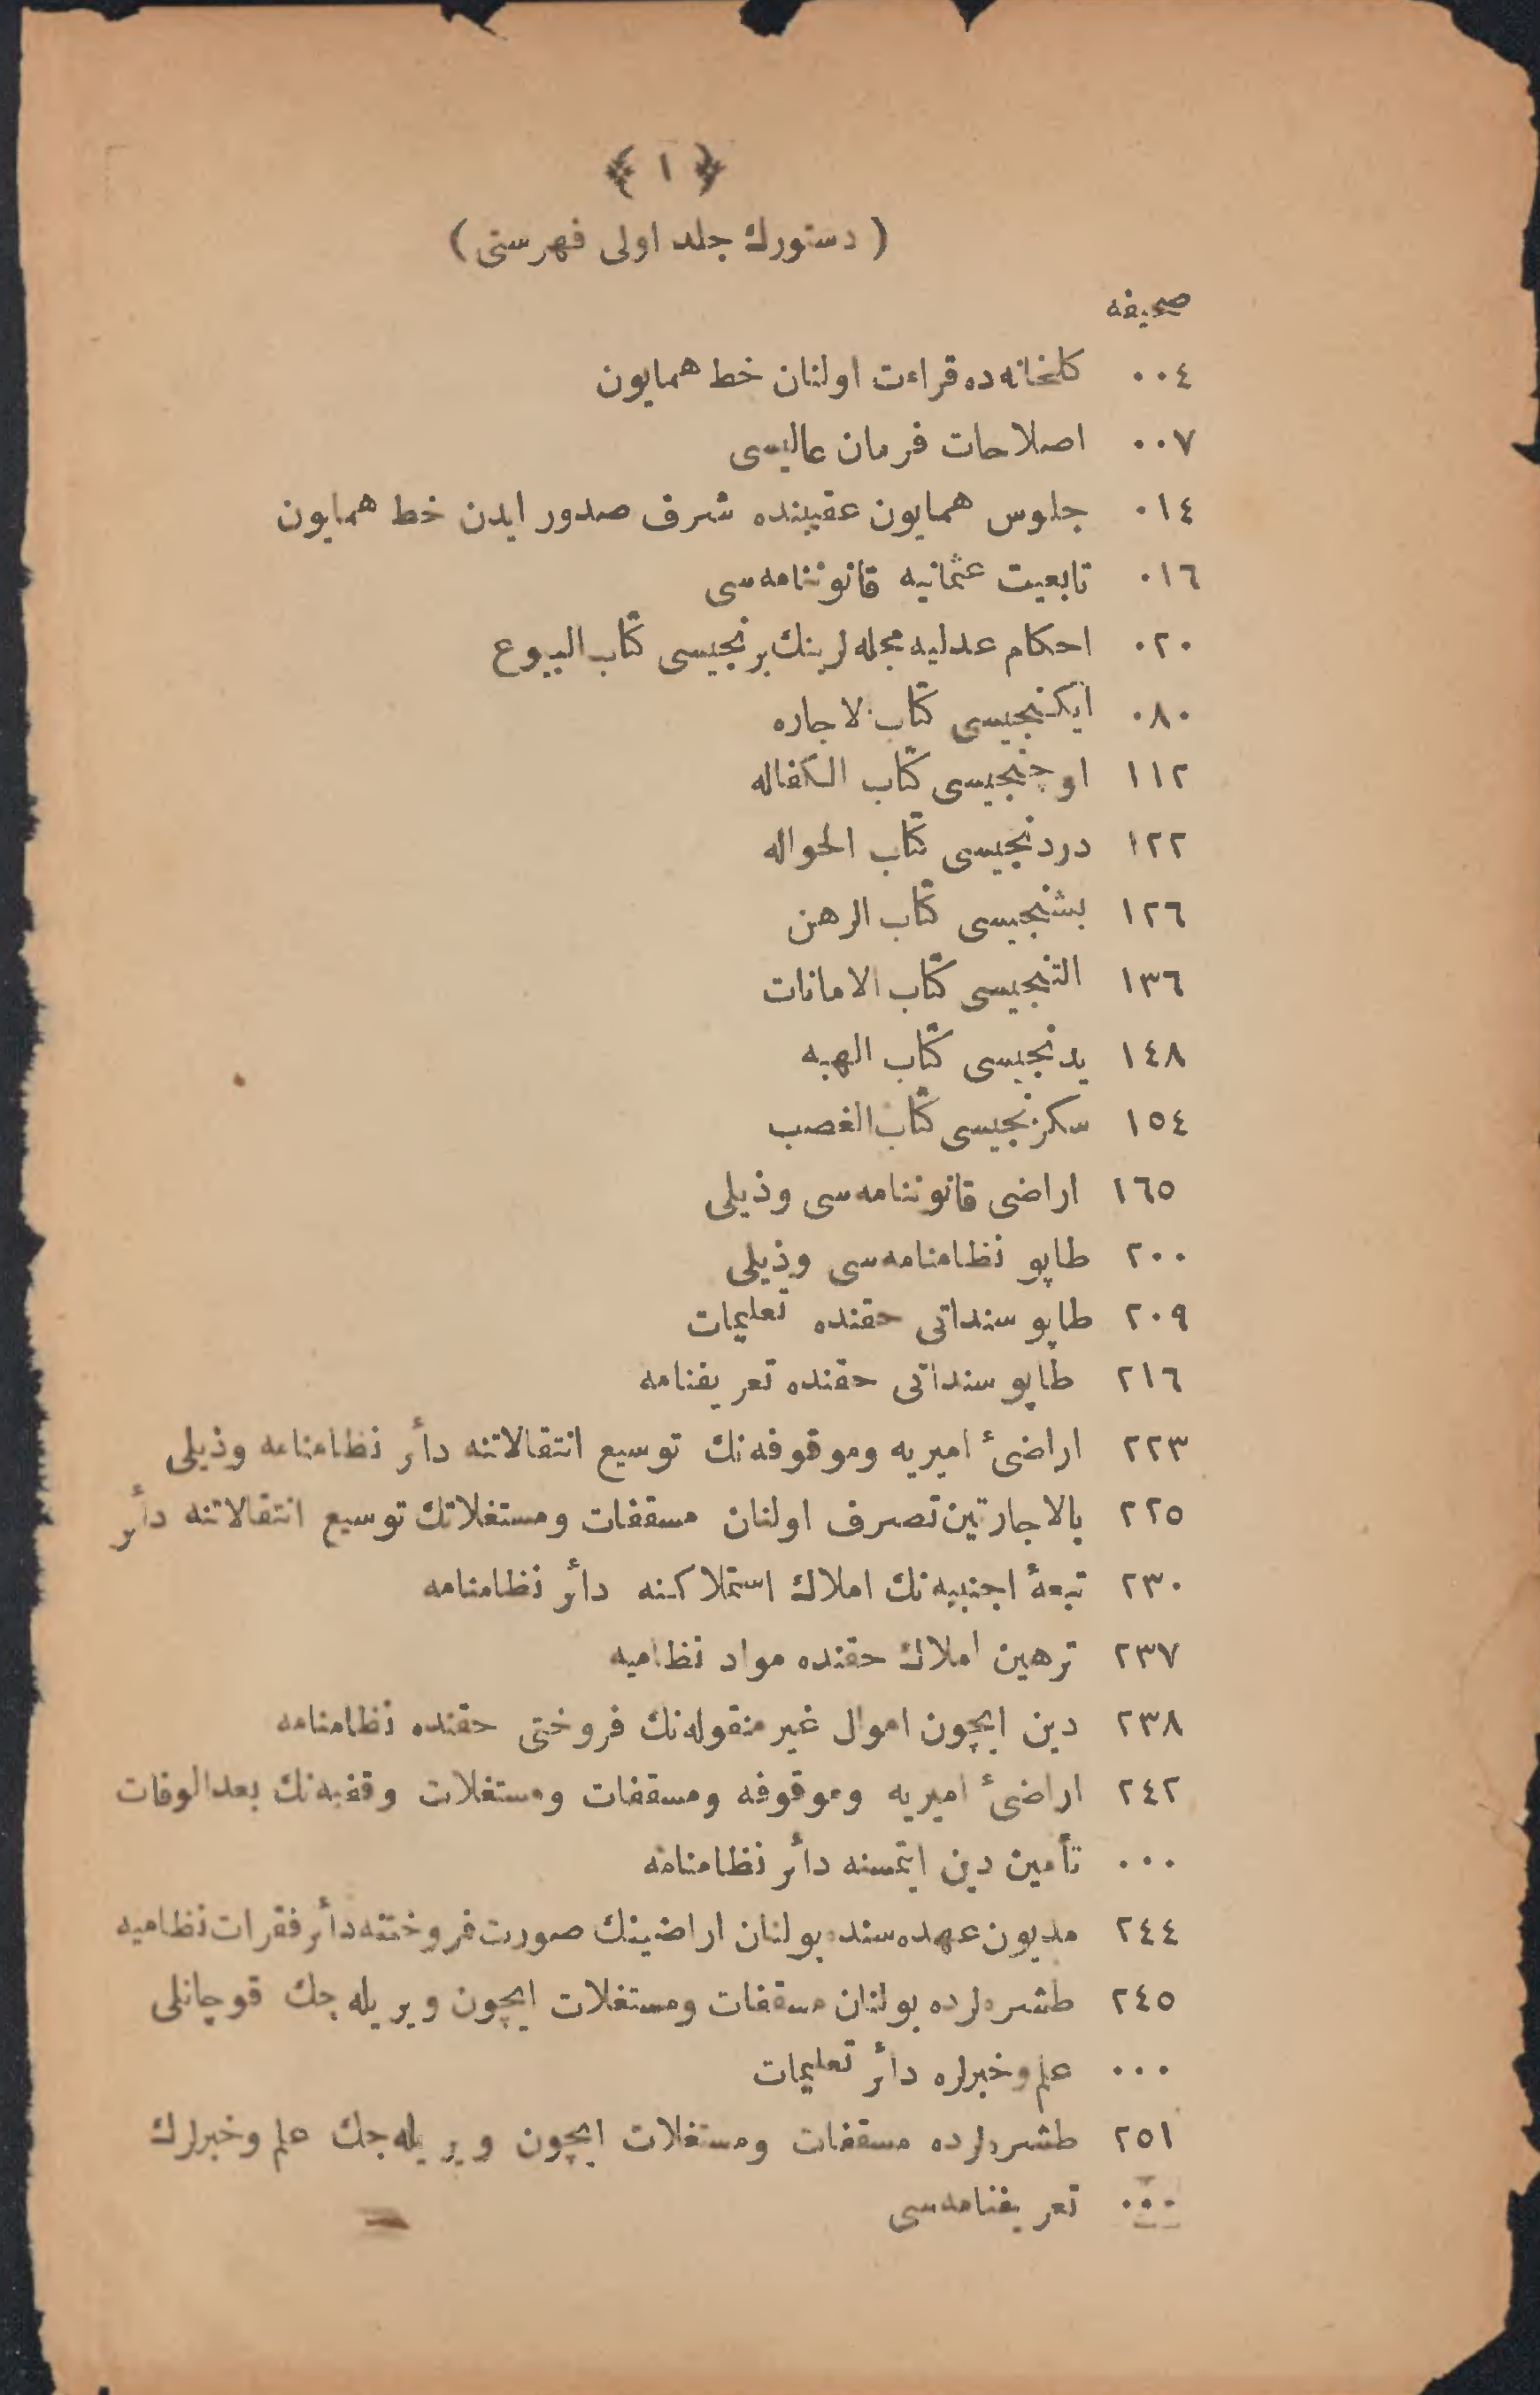 ﴿ ١ ﴾
( دستورك جلد اولى فهرستى )
صحيفه
٠٠٤ كلخانه‌ده قراءت اولنان خط همايون
٠٠٧ اصلاحات فرمان عاليسى
٠١٤ جلوس همايون عقيبنده شرف صدور ايدن خط همايون
٠١٦ تابعيت عثمانيه قانوننامه‌سى
٠٢٠ احكام عدليه مجله‌لرينك برنجيسى كتاب البيوع
٠٨٠ ايكنجيسى كتاب الاجاره
١١٢ اوچنجيسى كتاب الكفاله
١٢٢ دردنجيسى كتاب الحواله
١٢٦ بشنجيسى كتاب الرهن
١٣٦ التنجيسى كتاب الامانات
١٤٨ يدنجيسى كتاب الهبه
١٥٤ سكزنجيسى كتاب الغصب
١٦٥ اراضى قانوننامه‌سى وذيلى
٢٠٠ طاپو نظامنامه‌سى وذيلى
٢٠٩ طاپو سنداتى حقنده تعليمات
٢١٦ طاپو سنداتى حقنده تعريفنامه
٢٢٣ اراضئ اميريه وموقوفه‌نك توسيع انتقالاتنه دأر نظامنامه وذيلى
٢٢٥ بالاجارتين تصرف اولنان مسقفات ومستغلاتك توسيع انتقالاتنه دأر
٢٣٠ تبعۀ اجنبيه‌نك املاك استملاكنه دأر نظامنامه
٢٣٧ ترهين املاك حقنده مواد نظاميه
٢٣٨ دين ايچون اموال غير منقوله‌نك فروختى حقنده نظامنامه
٢٤٢ اراضئ اميريه وموقوفه ومسقفات ومستغلات وقفيه‌نك بعدالوفات
٠٠٠ تأمين دين ايتمسنه دأر نظامنامه
٢٤٤ مديون عهده‌سنده بولنان اراضينك صورت فروختنه دأر فقرات نظاميه
٢٤٥ طشره‌لرده بولنان مسقفات ومستغلات ايچون ويريله‌جك قوچانلى
٠٠٠ علم وخبرلره دأر تعليمات
٢٥١ طشره‌لرده مسقفات ومستغلات ايچون ويريله‌جك علم وخبرلرك
٠٠٠ تعريفنامه‌سى